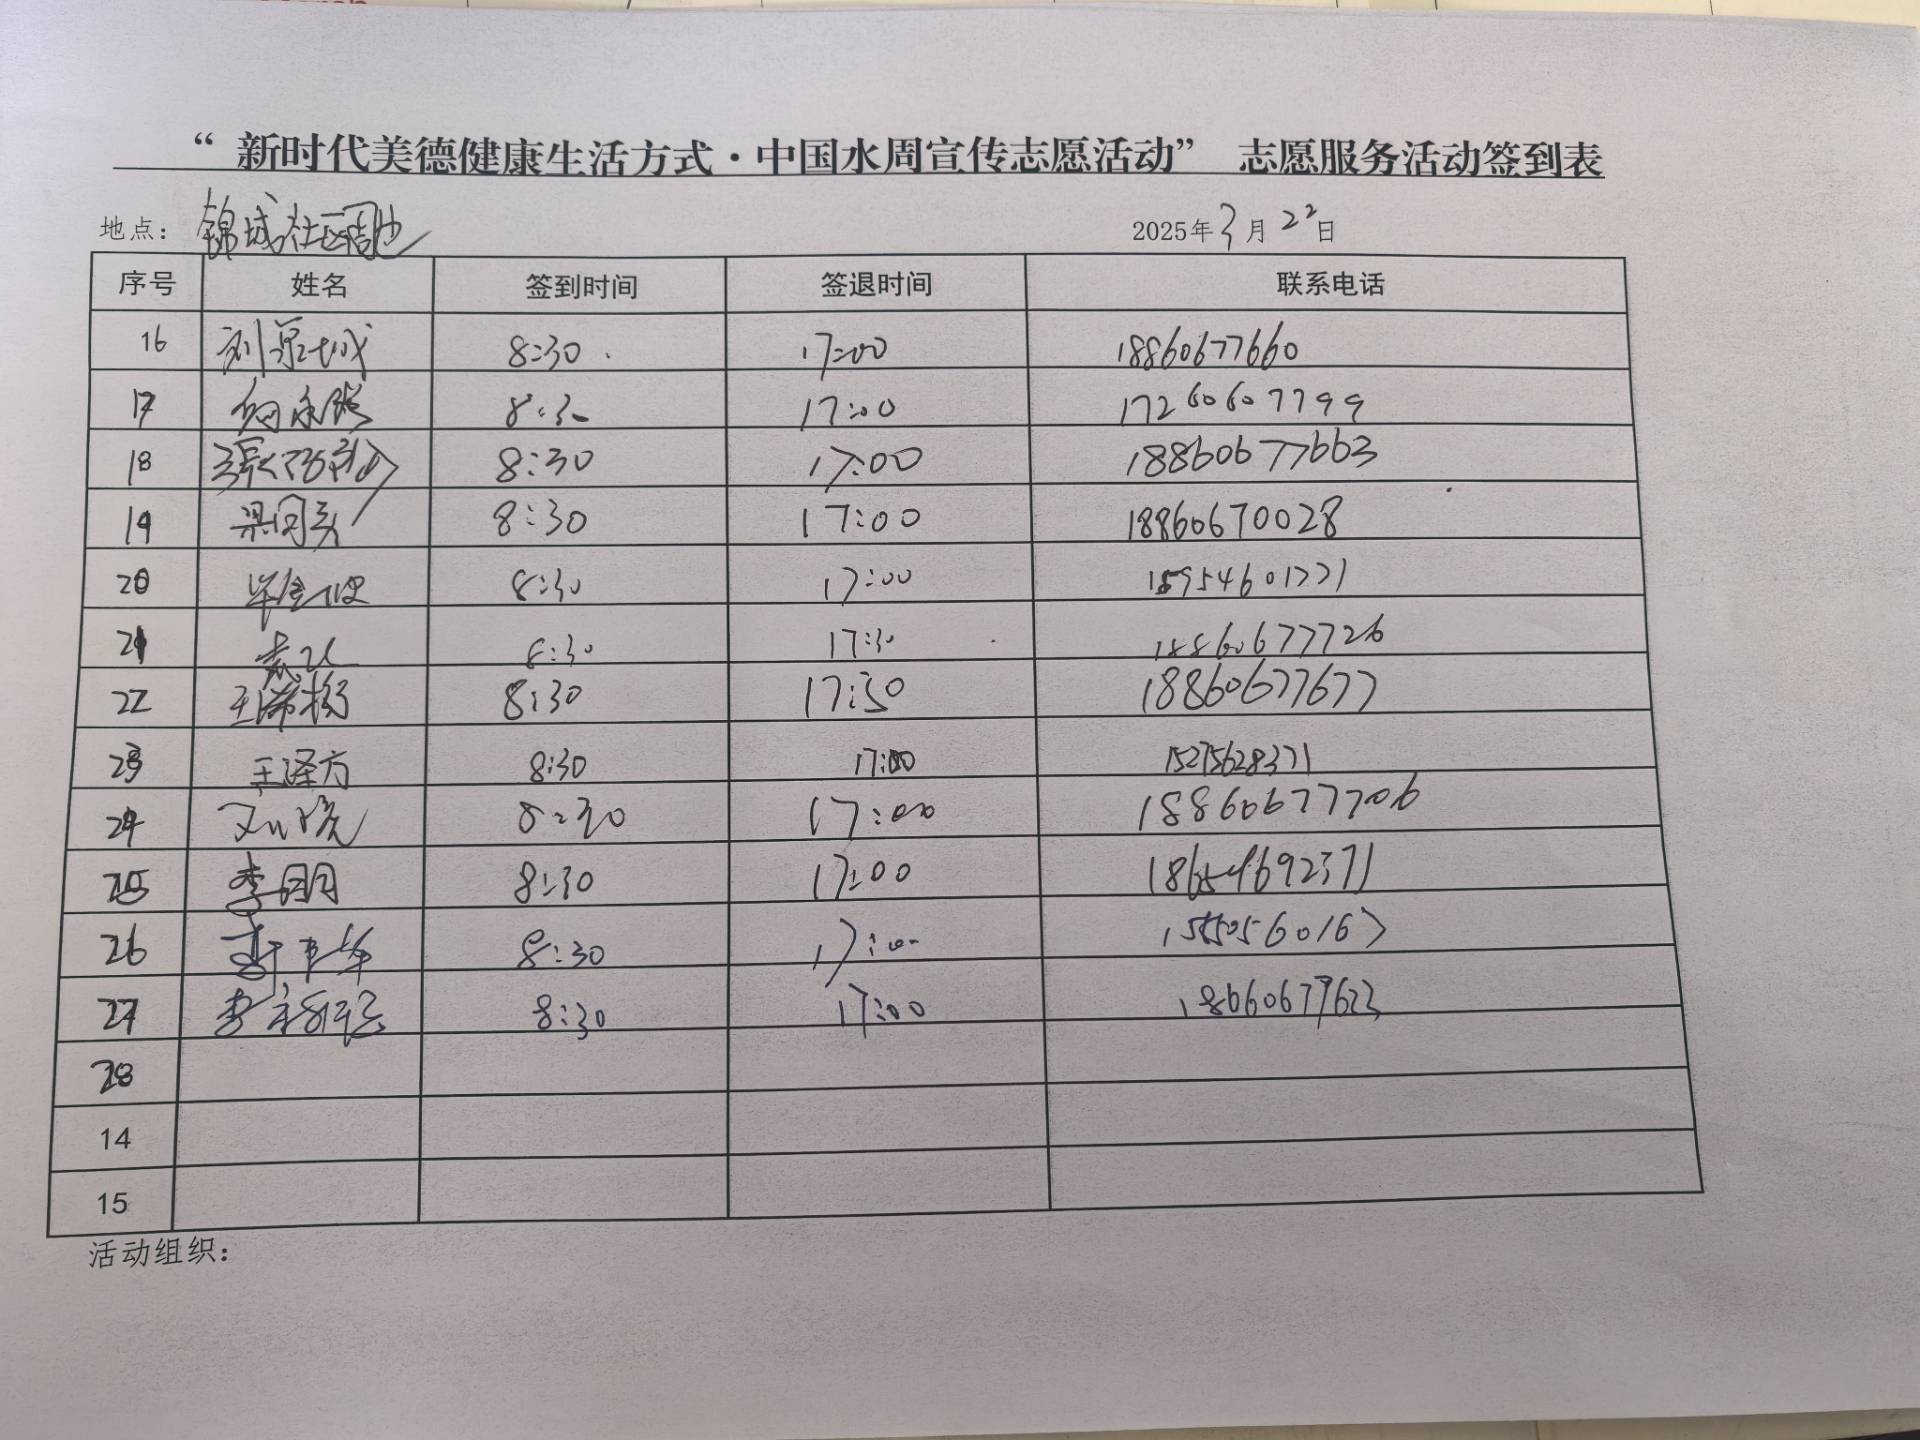 “新时代美德健康生活方式·中国水周宣传志愿活动” 志愿服务活动签到表
地点：锦城社区周边 2025年3月22日
序号 姓名 签到时间 签退时间 联系电话
16 8:30 17:00 18860677660
17 8:30 17:00 17260607799
18 8:30 17:00 18860677663
19 梁同兴 8:30 17:00 18860670028
20 8:30 17:00 18954601771
21 8:30 17:30 18860677726
22 8:30 17:30 18860677677
23 王泽方 8:30 17:00 15275628371
24 刘晓 8:30 17:00 18860677706
25 李明 8:30 17:00 18654692371
26 8:30 17:00
27 李 8:30 17:00 18660677623
28
14
15
活动组织：